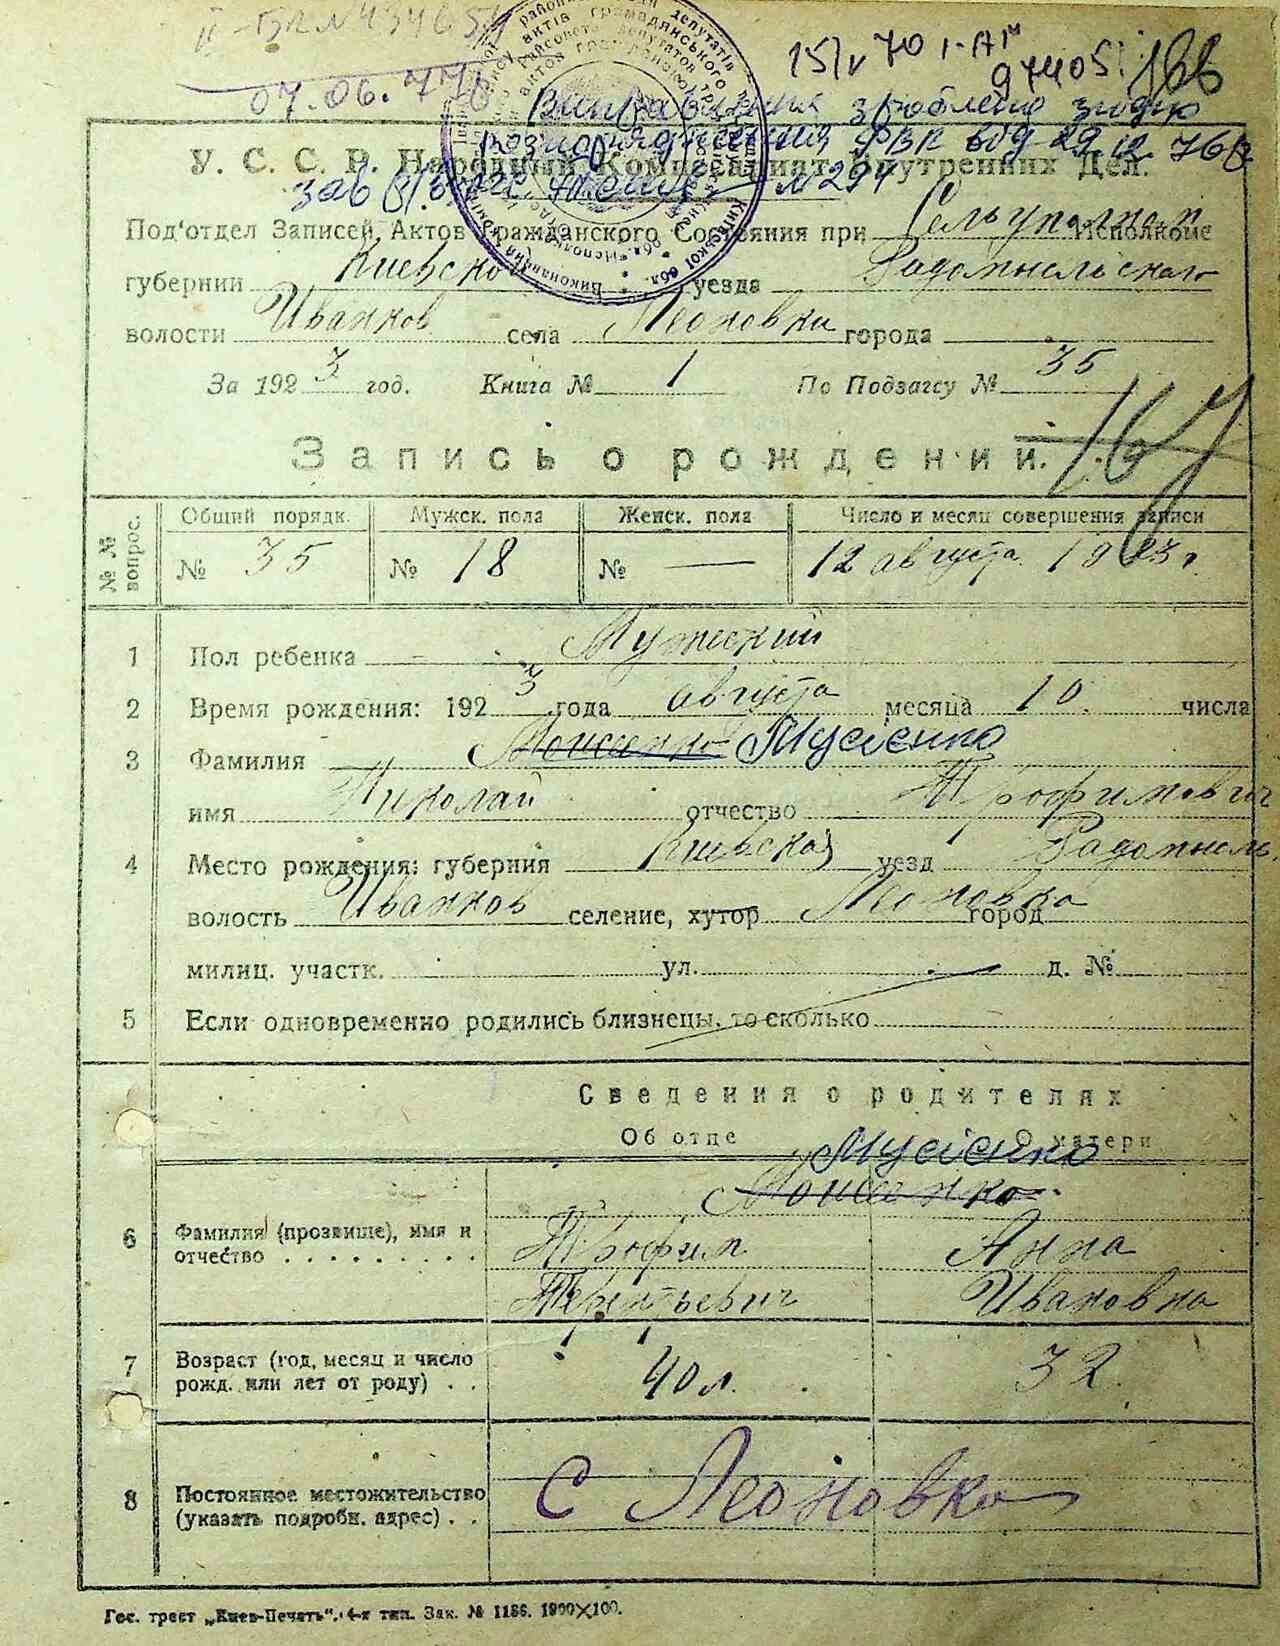 II-БК № 434651
151/v 70 I-АМ
974051
166
07.06.77
Виправлення зроблено згідно
розпорядження РВК від 29.12.76р.
зав № 294
У. С. С. Р. Народный Комиссариат Внутренних Дел.
Под'отдел Записей Актов Гражданского Состояния при Исполкоме
губернии Киевской уезда Радомысльского
волости Иванков села Леоновки города
За 1923 год. Книга № 1 По Подзагсу № 35
Запись о рождении. 167
№ № вопрос. Общий порядк. Мужск. пола Женск. пола Число и месяц совершения записи
№ 35 № 18 № — 12 августа 1923 г.
1 Пол ребенка Мужеский
2 Время рождения: 1923 года августа месяца 10 числа
3 Фамилия Моисеенко Мусієнко
имя Николай отчество Трофимович
4 Место рождения: губерния Киевская уезд Радомысль.
волость Иванков селение, хутор Леоновка город
милиц. участк. ул. — д. №
5 Если одновременно родились близнецы, то сколько
Сведения о родителях
Об отце О матери
Мусієнко
Моисеенко
6 Фамилия (прозвище), имя и Трофим Анна
отчество . . . . . . . . . Терентьевич Ивановна
7 Возраст (год, месяц и число
рожд. или лет от роду) . . 40 л. 32.
8 Постоянное местожительство С Леоновка
(указать подробн. адрес) . .
Гос. трест „Киев-Печать". 4-я тип. Зак. № 1186. 1900×100.